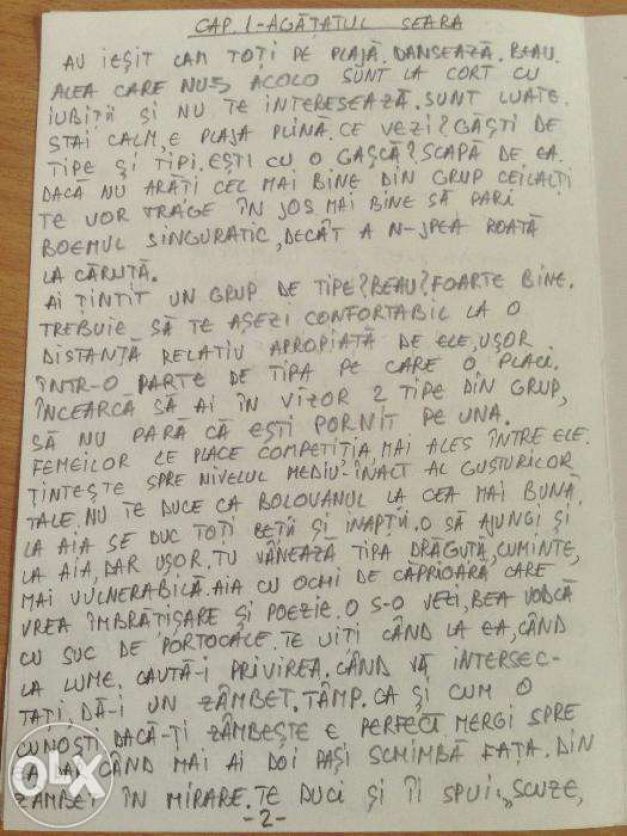 CAP. 1-AGĂȚATUL SEARA
AU IEȘIT CAM TOȚI PE PLAJĂ. DANSEAZĂ. BEAU.
ALEA CARE NU-S ACOLO SUNT LA CORT CU
IUBIȚII ȘI NU TE INTERESEAZĂ. SUNT LUATE.
STAI CALM, E PLAJA PLINĂ. CE VEZI? GĂȘTI DE
TIPE ȘI TIPI. EȘTI CU O GAȘCĂ? SCAPĂ DE EA.
DACĂ NU ARĂȚI CEL MAI BINE DIN GRUP CEILALȚI
TE VOR TRAGE ÎN JOS MAI BINE SĂ PARI
BOEMUL SINGURATIC, DECÂT A N-JPEA ROATĂ
LA CĂRUȚĂ.
AI ȚINTIT UN GRUP DE TIPE? BEAU? FOARTE BINE.
TREBUIE SĂ TE AȘEZI CONFORTABIL LA O
DISTANȚĂ RELATIV APROPIATĂ DE ELE, UȘOR
ÎNTR-O PARTE DE TIPA PE CARE O PLACI.
ÎNCEARCĂ SĂ AI ÎN VIZOR 2 TIPE DIN GRUP,
SĂ NU PARĂ CĂ EȘTI PORNIT PE UNA.
FEMEILOR LE PLACE COMPETIȚIA, MAI ALES ÎNTRE ELE.
ȚINTEȘTE SPRE NIVELUL MEDIU-ÎNALT AL GUSTURILOR
TALE. NU TE DUCE CA BOLOVANUL LA CEA MAI BUNĂ.
LA AIA SE DUC TOȚI BEȚII ȘI INAPȚII. O SĂ AJUNGI ȘI
LA AIA, DAR UȘOR. TU VÂNEAZĂ TIPA DRĂGUȚĂ, CUMINTE,
MAI VULNERABILĂ. AIA CU OCHI DE CĂPRIOARĂ CARE
VREA ÎMBRĂȚIȘARE ȘI POEZIE. O S-O VEZI, BEA VODCĂ
CU SUC DE PORTOCALE. TE UIȚI CÂND LA EA, CÂND
LA LUME. CAUTĂ-I PRIVIREA. CÂND VĂ INTERSEC-
TAȚI, DĂ-I UN ZÂMBET. TÂMP. CA ȘI CUM O
CUNOȘTI. DACĂ-ȚI ZÂMBEȘTE E PERFECT. MERGI SPRE
EA DAR CÂND MAI AI DOI PAȘI SCHIMBĂ FAȚA. DIN
ZÂMBET ÎN MIRARE. TE DUCI ȘI ÎI SPUI: „SCUZE,
-2-
OLX